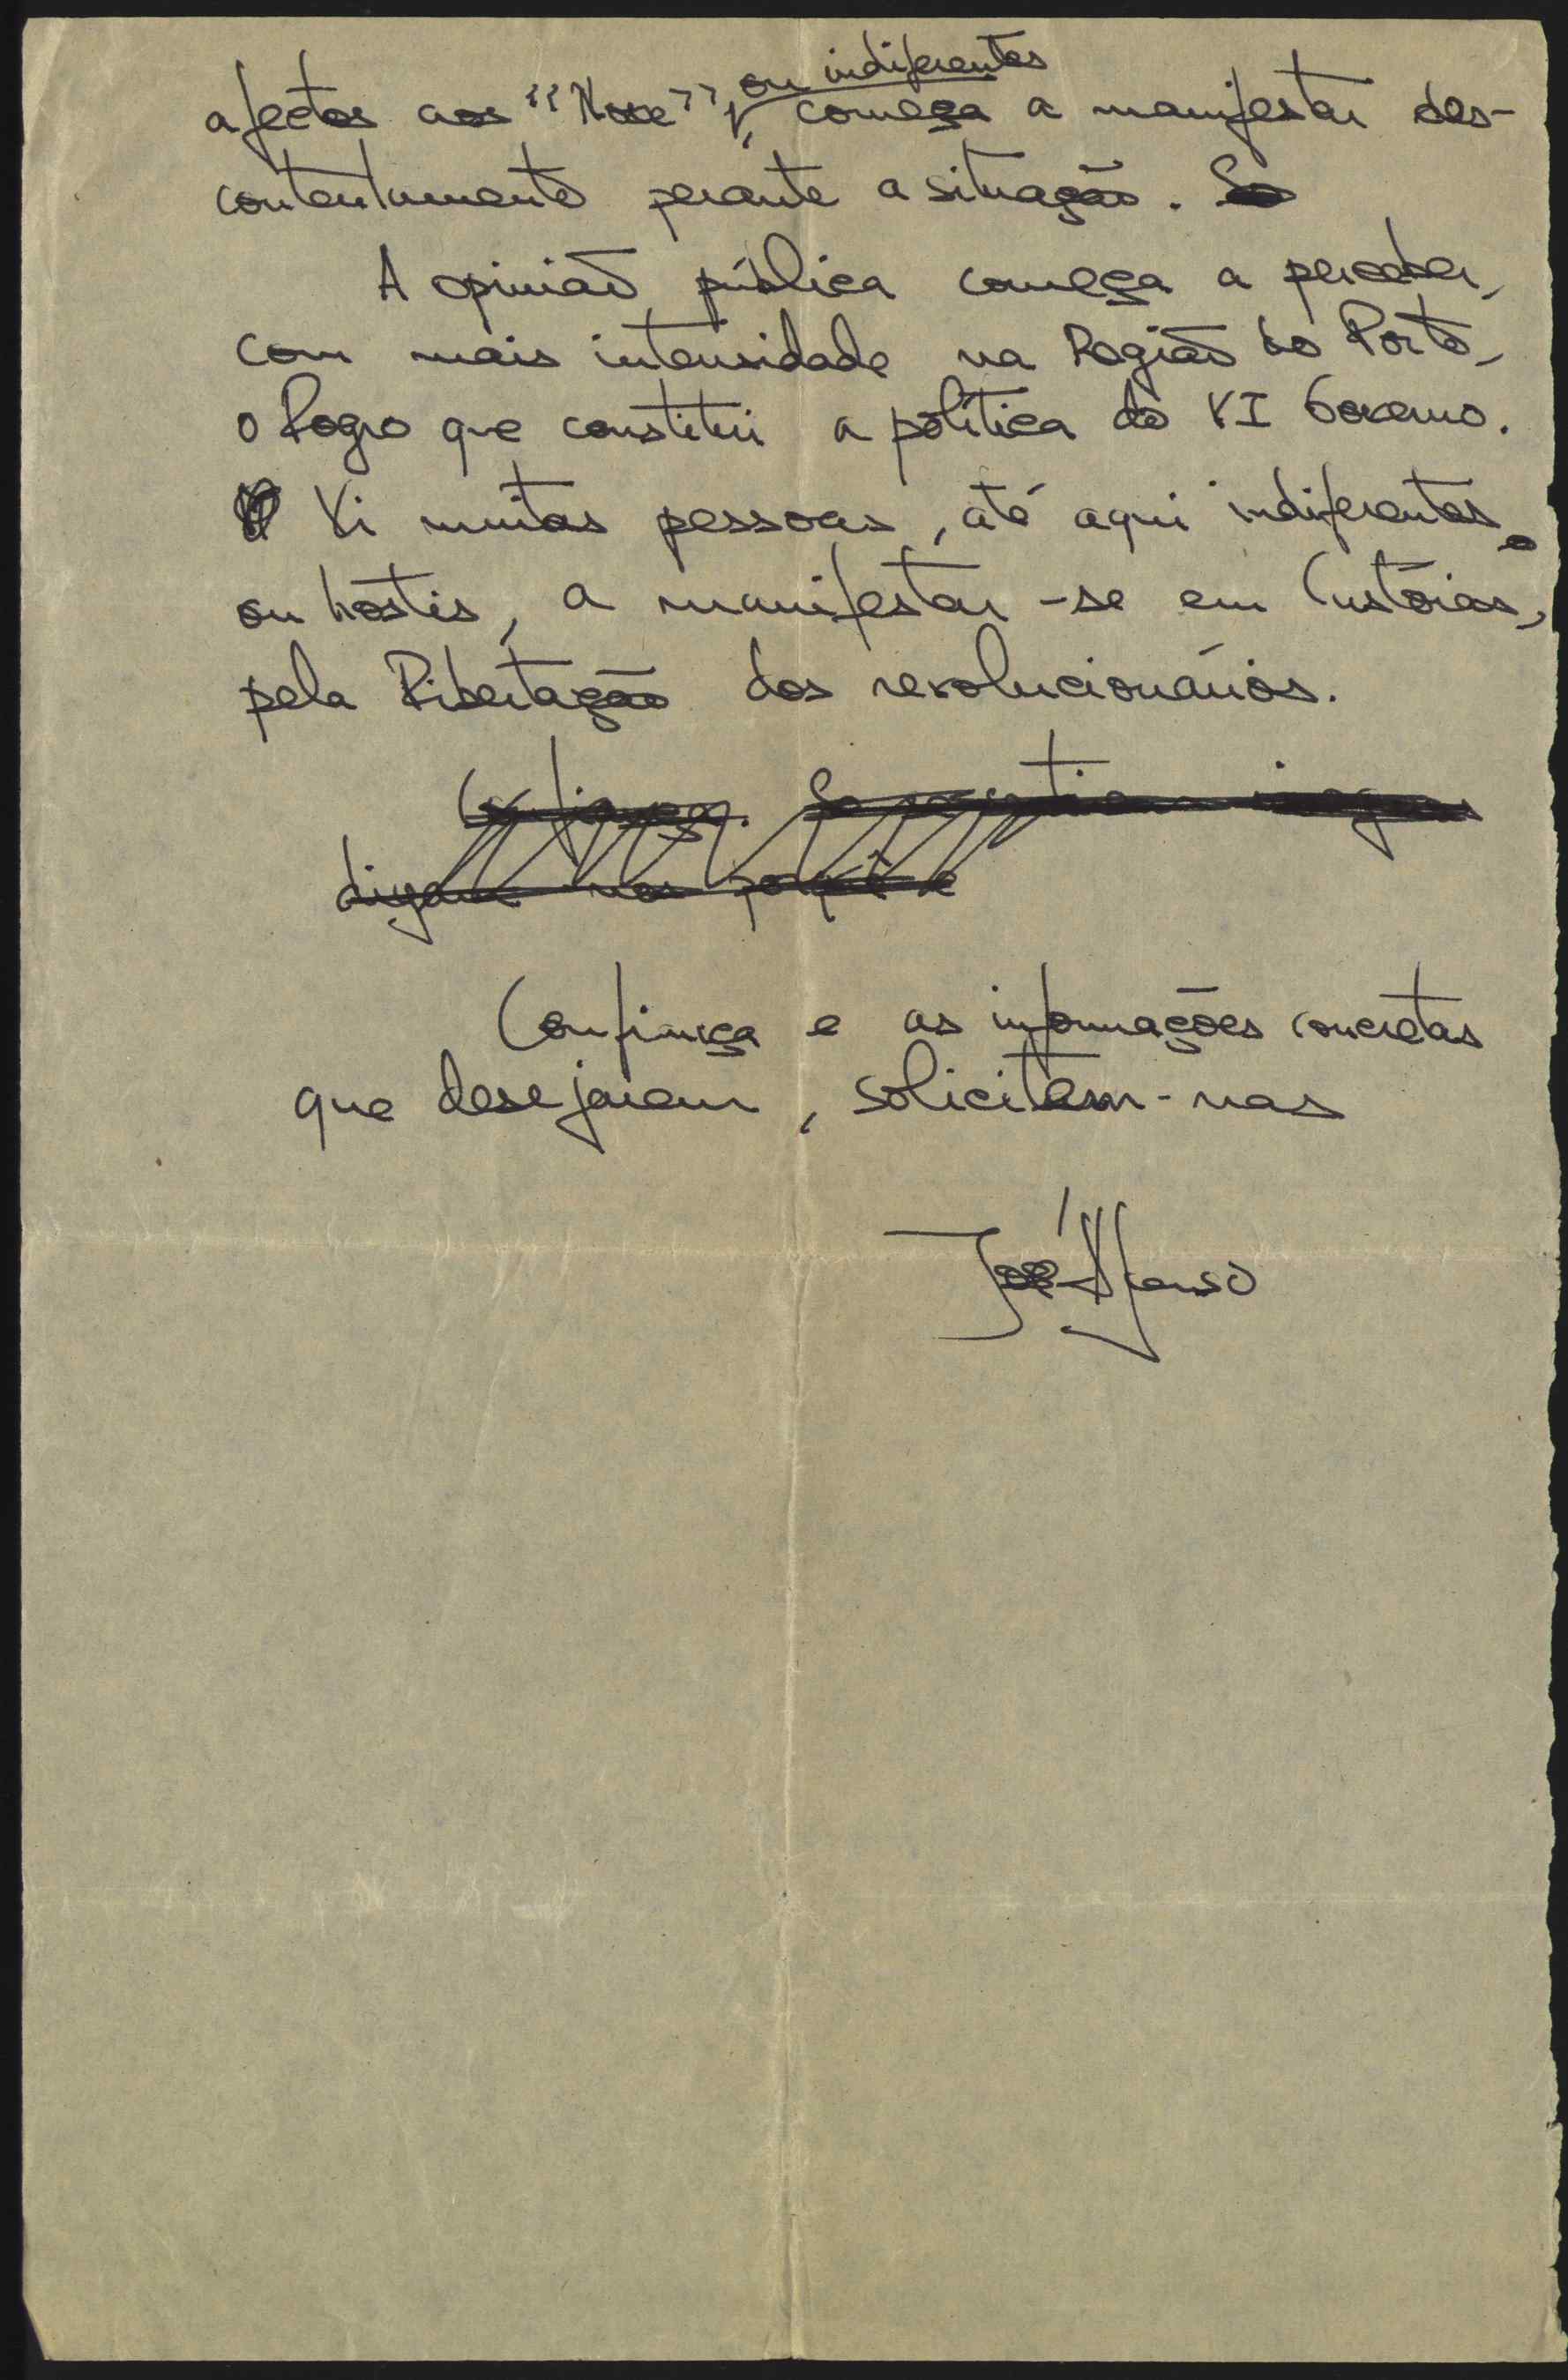 ou indiferentes
afectos aos "Nove", começa a manifestar des-
contentamento perante a situação. Se
A opinião pública começa a perceber,
com mais intensidade na Região do Porto,
o logro que constitui a política do VI Governo.
Vi muitas pessoas, até aqui indiferentes
ou hostis, a manifestar-se em Custóias,
pela libertação dos revolucionários.
Confiança.
digam-nos porquê e
Confiança e as informações concretas
que desejarem, solicitem-nas
José Afonso